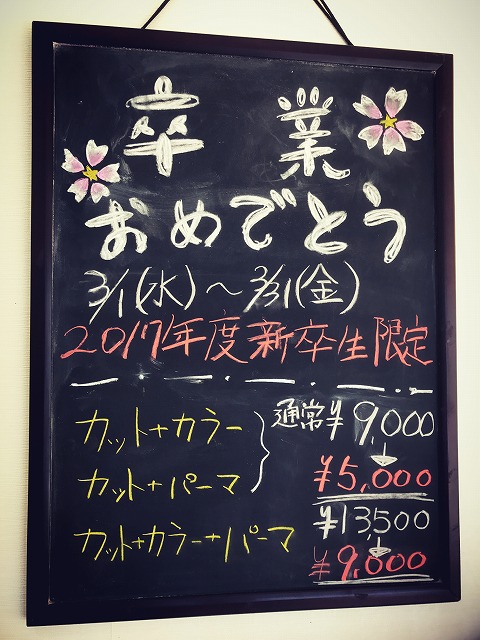 卒業
おめでとう
3/1(水)～3/31(金)
2017年度新卒生限定
カット+カラー
カット+パーマ
通常¥9,000
↓
¥5,000
カット+カラー+パーマ
¥13,500
↓
¥9,000